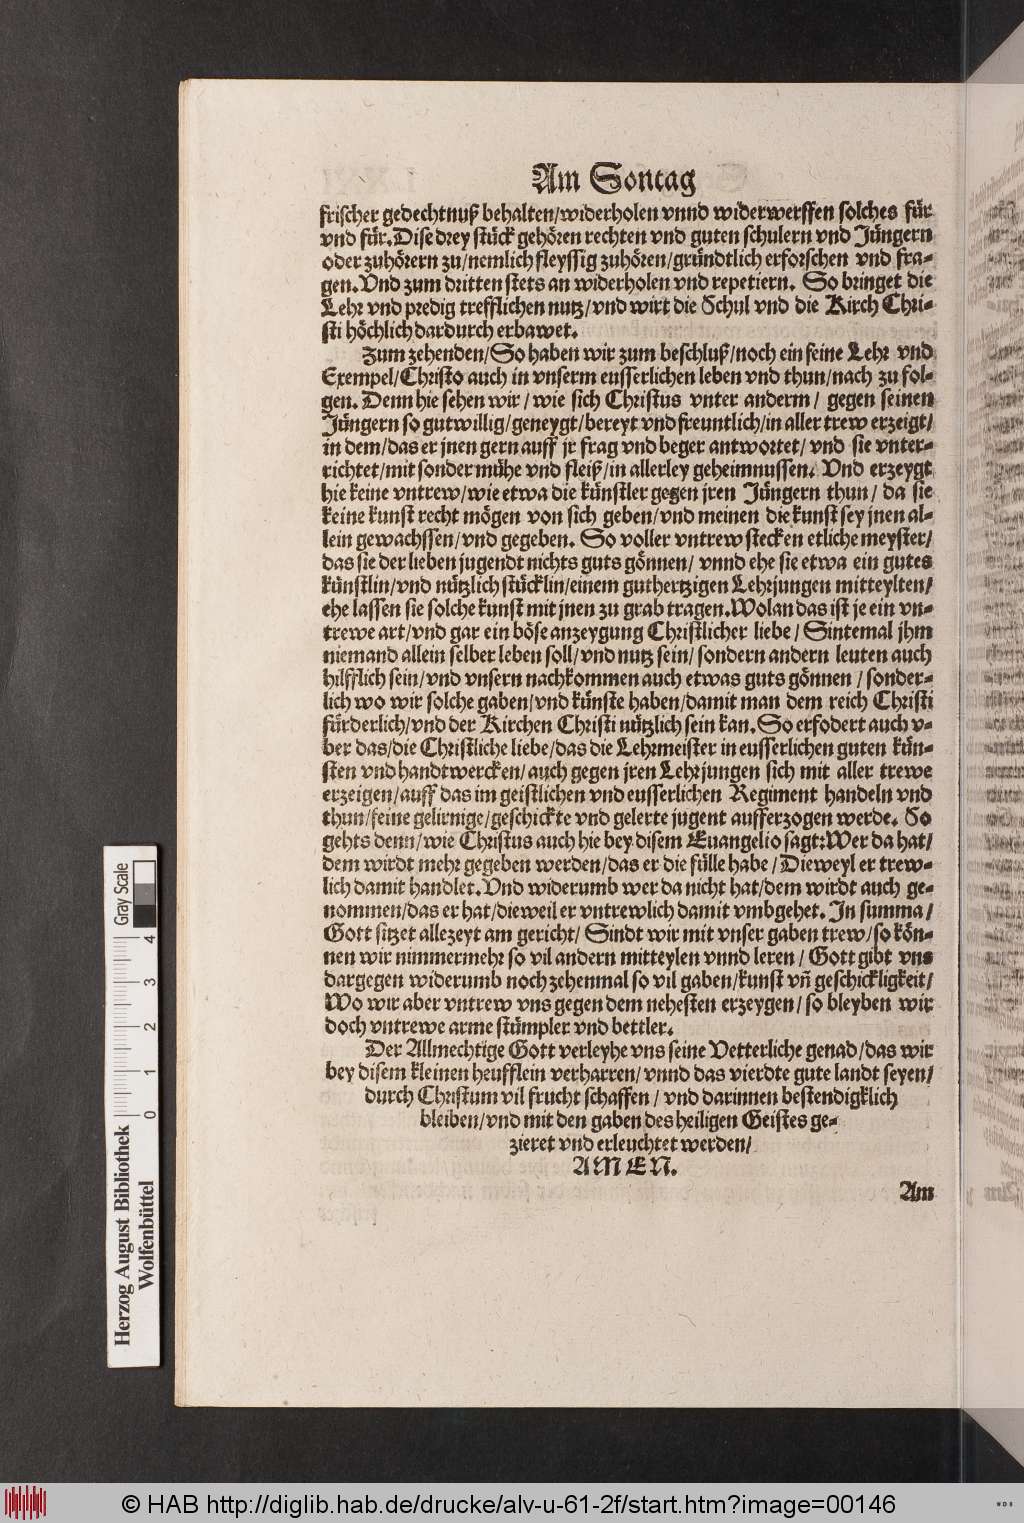 Am Sontag
frischer gedechtnuß behalten/widerholen vnnd widerwerffen solches für
vnd für. Dise drey stück gehören rechten vnd guten schulern vnd Jüngern
oder zuhörern zu/nemlich fleyssig zuhören/gründtlich erforschen vnd fra-
gen. Vnd zum dritten stets an widerholen vnd repetiern. So bringet die
Lehr vnd predig trefflichen nutz/vnd wirt die Schul vnd die Kirch Chri-
sti höchlich dardurch erbawet.
Zum zehenden/So haben wir zum beschluß/noch ein feine Lehr vnd
Exempel/Christo auch in vnserm eusserlichen leben vnd thun/nach zu fol-
gen. Denn hie sehen wir/ wie sich Christus vnter anderm/ gegen seinen
Jüngern so gutwillig/geneygt/bereyt vnd freuntlich/in aller trew erzeigt/
in dem/das er jnen gern auff jr frag vnd beger antwortet/ vnd sie vnter-
richtet/mit sonder mühe vnd fleiß/in allerley geheimnussen. Vnd erzeygt
hie keine vntrew/wie etwa die künstler gegen jren Jüngern thun/ da sie
keine kunst recht mögen von sich geben/vnd meinen die kunst sey jnen al-
lein gewachssen/vnd gegeben. So voller vntrew stecken etliche meyster/
das sie der lieben jugendt nichts guts gönnen/ vnnd ehe sie etwa ein gutes
künstlin/vnd nützlich stücklin/einem guthertzigen Lehrjungen mitteylten/
ehe lassen sie solche kunst mit jnen zu grab tragen. Wolan das ist je ein vn-
trewe art/vnd gar ein böse anzeygung Christlicher liebe/ Sintemal jhm
niemand allein selber leben soll/vnd nutz sein/ sondern andern leuten auch
hilfflich sein/vnd vnsern nachkommen auch etwas guts gönnen/ sonder-
lich wo wir solche gaben/vnd künste haben/damit man dem reich Christi
fürderlich/vnd der Kirchen Christi nützlich sein kan. So erfodert auch v-
ber das/die Christliche liebe/das die Lehrmeister in eusserlichen guten kün-
sten vnd handtwercken/auch gegen jren Lehrjungen sich mit aller trewe
erzeigen/auff das im geistlichen vnd eusserlichen Regiment handeln vnd
thun/feine gelirnige/geschickte vnd gelerte jugent aufferzogen werde. So
gehts denn/wie Christus auch hie bey disem Euangelio sagt: Wer da hat/
dem wirdt mehr gegeben werden/das er die fülle habe/ Dieweyl er trew-
lich damit handlet. Vnd widerumb wer da nicht hat/dem wirdt auch ge-
nommen/das er hat/dieweil er vntrewlich damit vmbgehet. In summa/
Gott sitzet allezeyt am gericht/ Sindt wir mit vnser gaben trew/so kön-
nen wir nimmermehr so vil andern mitteylen vnnd leren/ Gott gibt vns
dargegen widerumb noch zehenmal so vil gaben/kunst vñ geschickligkeit/
Wo wir aber vntrew vns gegen dem nehesten erzeygen/ so bleyben wir
doch vntrewe arme stümpler vnd bettler.
Der Allmechtige Gott verleyhe vns seine Vetterliche genad/das wir
bey disem kleinen heufflein verharren/ vnnd das vierdte gute landt seyen/
durch Christum vil frucht schaffen/ vnd darinnen bestendigklich
bleiben/vnd mit den gaben des heiligen Geistes ge-
zieret vnd erleuchtet werden/
AMEN.
Am
Gray Scale
4
3
2
1
0
Herzog August Bibliothek
Wolfenbüttel
© HAB http://diglib.hab.de/drucke/alv-u-61-2f/start.htm?image=00146